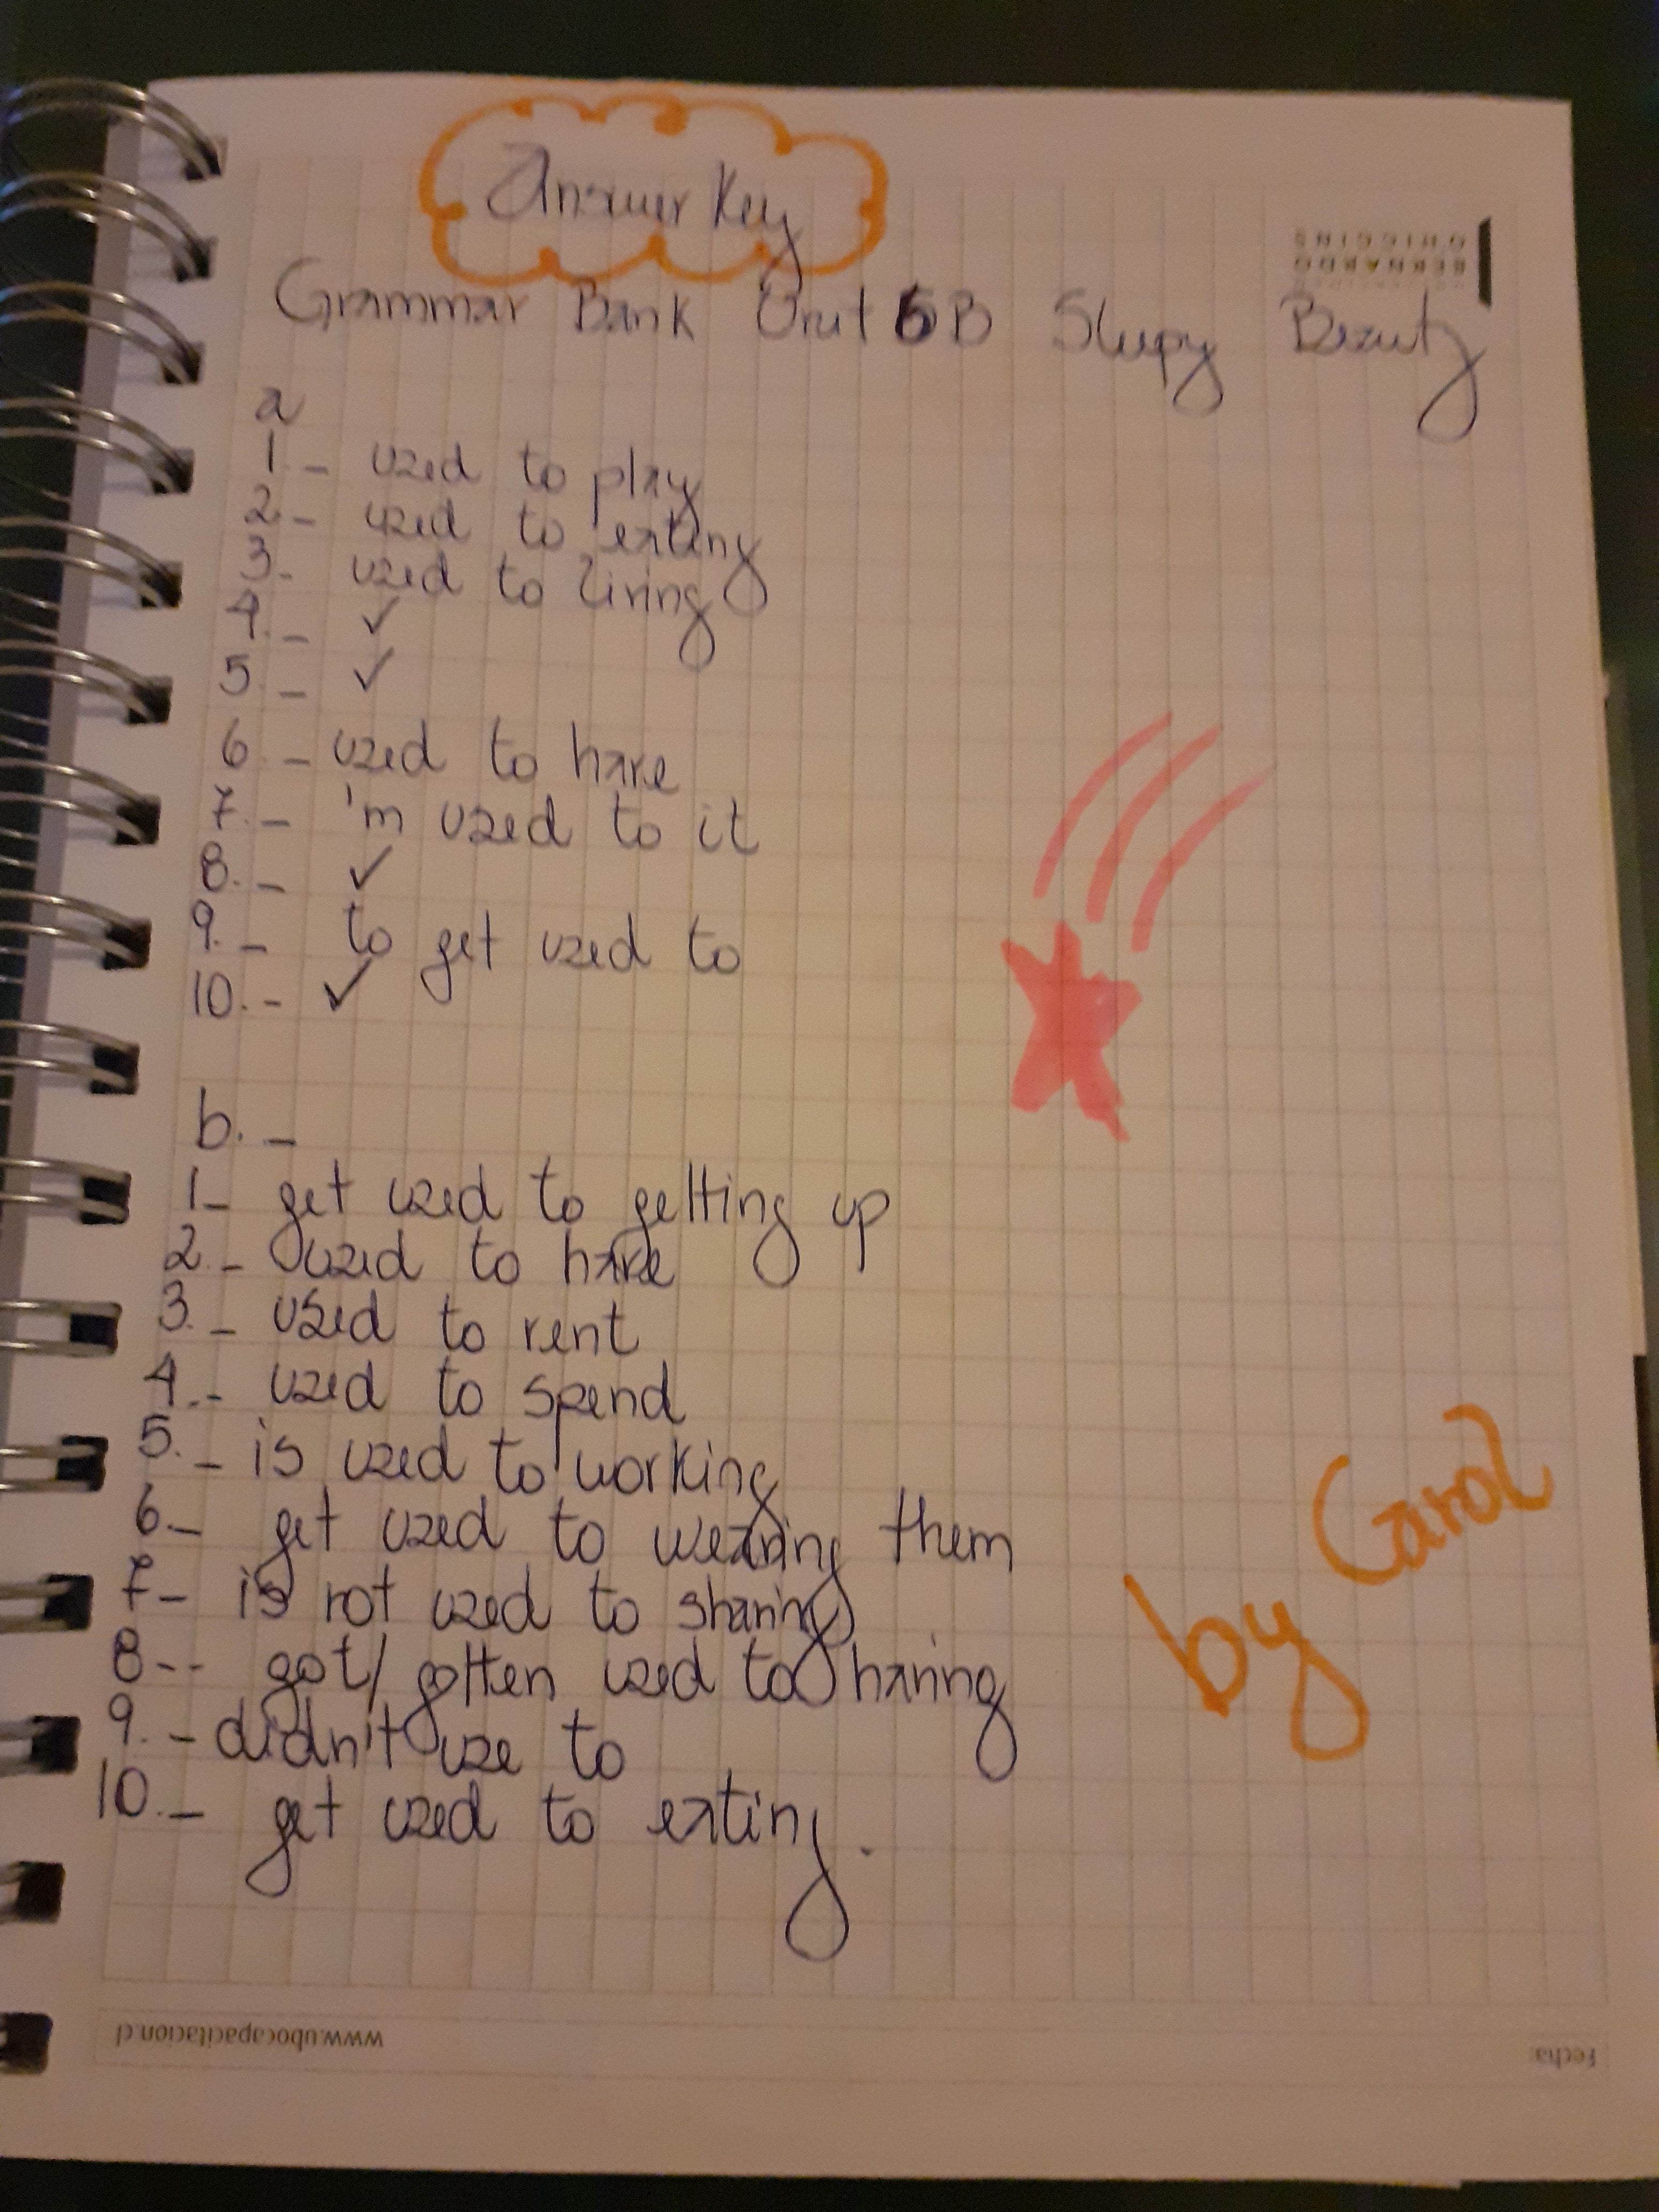 Answer Key
BERNARDO
O'HIGGINS
Grammar Bank Unit 6B Sleepy Beauty
a
1.- used to play
2.- used to eating
3.- used to living
4.- ✓
5.- ✓
6.- used to have
7.- 'm used to it
8.- ✓
9.- to get used to
10.- ✓
b.-
1- get used to getting up
2.- used to have
3.- used to rent
4.- used to spend
5.- is used to working
6.- get used to wearing them
7- is not used to sharing
8-- got/gotten used to having
9.- didn't use to
10.- get used to eating.
by Carol
www.ubocapacitacion.cl
Fecha: